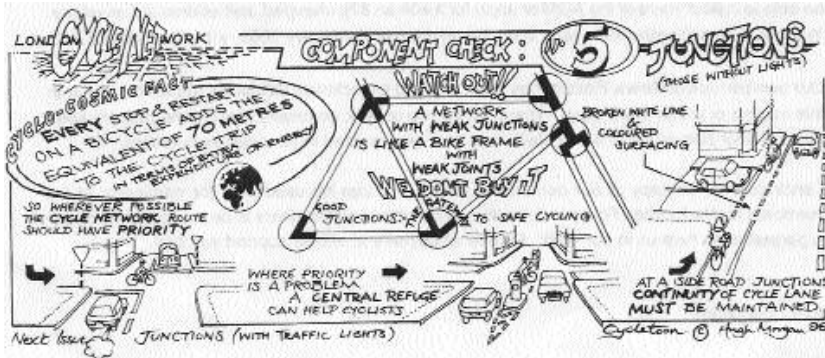 LONDON CYCLE NETWORK
COMPONENT CHECK: No 5 JUNCTIONS
(THOSE WITHOUT LIGHTS)
CYCLO-COSMIC FACT
EVERY STOP & RESTART
ON A BICYCLE ADDS THE
EQUIVALENT OF 70 METRES
TO THE CYCLE TRIP
IN TERMS OF EXTRA
EXPENDITURE OF ENERGY
SO WHEREVER POSSIBLE
THE CYCLE NETWORK ROUTE
SHOULD HAVE PRIORITY
WATCH OUT!!
A NETWORK
WITH WEAK JUNCTIONS
IS LIKE A BIKE FRAME
WITH
WEAK JOINTS
WE DON'T BUY IT
GOOD
JUNCTIONS:- THE GATEWAY TO SAFE CYCLING
WHERE PRIORITY
IS A PROBLEM
A CENTRAL REFUGE
CAN HELP CYCLISTS
BROKEN WHITE LINE
COLOURED
SURFACING
AT A SIDE ROAD JUNCTION
CONTINUITY OF CYCLE LANE
MUST BE MAINTAINED
Next Issue JUNCTIONS (WITH TRAFFIC LIGHTS)
Cycletoon © Hugh Morgan 96